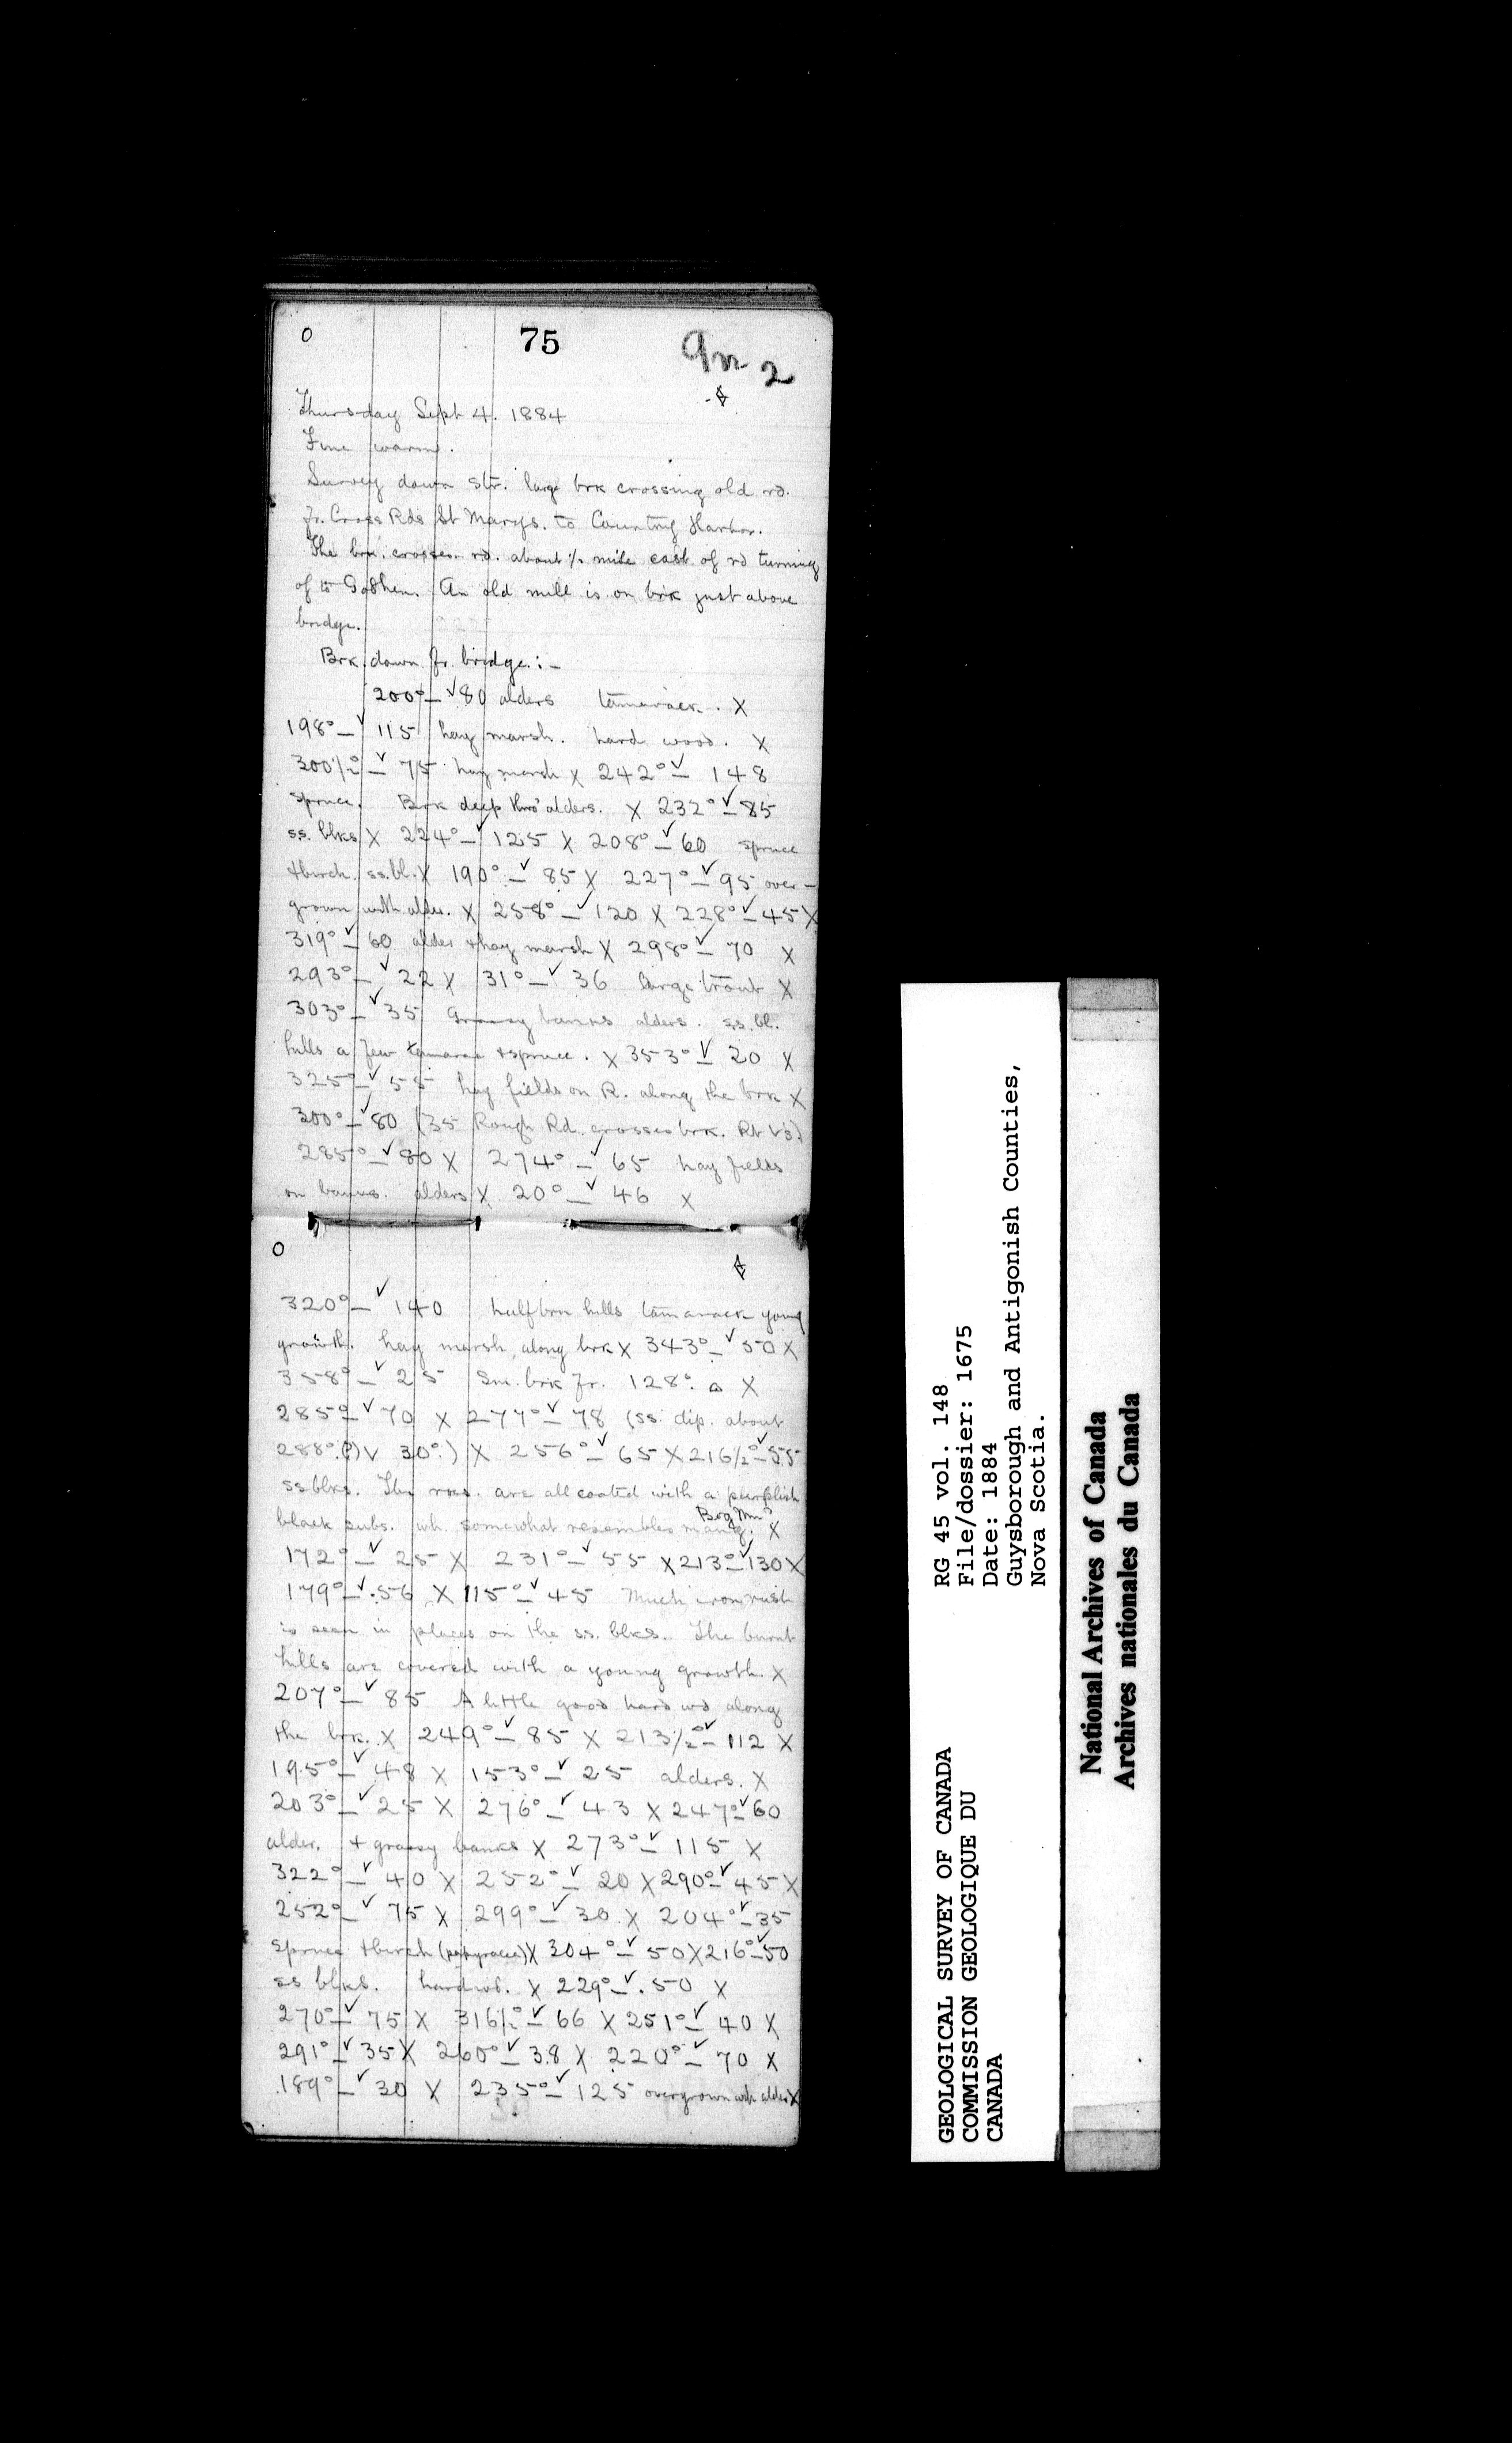 75
2
Thursday Sept 4. 1884
Fine warm.
Survey down str. large brk crossing old rd.
fr. Cross Rds St Marys. to Country Harbor.
The brk. crosses rd. about ½ mile east of rd turning
of to Goshen. An old mill is on brk just above
bridge.
Brk. down fr. bridge.:-
200°-✓80 alders tamarack. X
198°-✓115 hay marsh. hard wood. X
300½°-✓75 hay marsh X 242°✓- 148
spruce. Brk deep thro' alders. X 232°✓-85
ss. blks X 224°-✓125 X 208°-✓60 spruce
+birch. ss.bl. X 190°-✓85 X 227°-✓95 over-
grown with alder. X 258°-✓120 X 228°✓-45 X
319°-✓60 alder +hay marsh X 298°✓- 70 X
293°-✓22 X 31°-✓36 large trout X
303°-✓35 Grassy banks alders. ss.bl.
hills a few tamarac +spruce. X 353°-✓20 X
325°-✓55 hay fields on R. along the brk X
300°-✓80 (35 Rough Rd. crosses brk. Rt ∠s.)
285°-✓80 X 274°-✓65 hay fields
on banks. alders X 20°-✓46 X
320°-✓140 half brn hills tamarack young
growth. hay marsh, along brk X 343°-✓50 X
358°-✓25 Sm. brk fr. 128°. X
285°-✓70 X 277°-✓78 (ss. dip. about
288°.(?)∨ 30°.) X 256°-✓65 X 216½°✓-55
ss blks. The rks. are all coated with a purplish
black subs. wh. somewhat resembles mang. Bog Mn? X
172°-✓25 X 231°-✓55 X 213°-✓130 X
179°-✓56 X 115°-✓45 Much iron rust
is seen in places on the ss. blks. The burnt
hills are covered with a young growth. X
207°-✓85 A little good hard wd along
the brk. X 249°-✓85 X 213½°✓-112 X
195°-✓48 X 153°-✓25 alders. X
203°-✓25 X 276°-✓43 X 247°✓-60
alder. + grassy banks X 273°-✓115 X
322°-✓40 X 252°-✓20 X 290°-✓45 X
252°-✓75 X 299°-✓30 X 204°✓-35
Spruce +birch (papyracea) X 304°-✓50 X 216°✓-50
ss blks. hardwd. X 229°-✓50 X
270°-✓75 X 316½°-✓66 X 251°-✓40 X
291°-✓35 X 260°-✓38 X 220°-✓70 X
189°-✓30 X 235°-✓125 overgrown with alder X
GEOLOGICAL SURVEY OF CANADA
COMMISSION GEOLOGIQUE DU
CANADA
RG 45 vol. 148
File/dossier: 1675
Date: 1884
Guysborough and Antigonish Counties,
Nova Scotia.
National Archives of Canada
Archives nationales du Canada